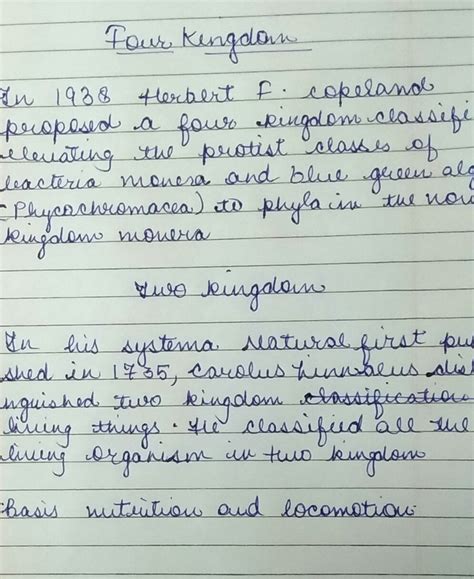 Four Kingdom
In 1938 Herbert F. copeland
proposed a four kingdom classife
elevating the protist classes of
bacteria monera and blue green alg
(Phycochromacea) to phyla in the nov
kingdom monera
two kingdom
In his systema Natural first pu
shed in 1735, carolus linnaeus dis
nguished two kingdom classification
living things. He classified all the
living organism in two kingdom
basis nutrition and locomotion.